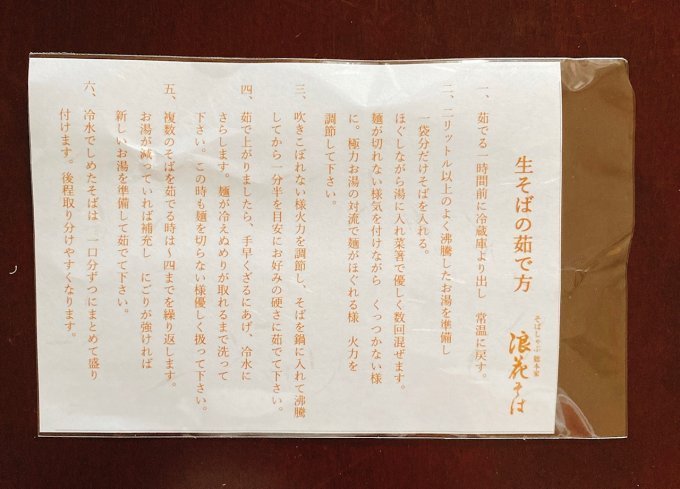 生そばの茹で方
そばしゃぶ 総本家
浪花そば
一、茹でる一時間前に冷蔵庫より出し 常温に戻す。
二、二リットル以上のよく沸騰したお湯を準備し
一袋分だけそばを入れる。
ほぐしながら湯に入れ菜箸で優しく数回混ぜます。
麺が切れない様気を付けながら くっつかない様
に。極力お湯の対流で麺がほぐれる様 火力を
調節して下さい。
三、吹きこぼれない様火力を調節し、そばを鍋に入れて沸騰
してから一分半を目安にお好みの硬さに茹でて下さい。
四、茹で上がりましたら、手早くざるにあげ、冷水に
さらします。麺が冷えぬめりが取れるまで洗って
下さい。この時も麺を切らない様優しく扱って下さい。
五、複数のそばを茹でる時は〜四までを繰り返します。
お湯が減っていれば補充し にごりが強ければ
新しいお湯を準備して茹でて下さい。
六、冷水でしめたそばは 一口分ずつにまとめて盛り
付けます。後程取り分けやすくなります。